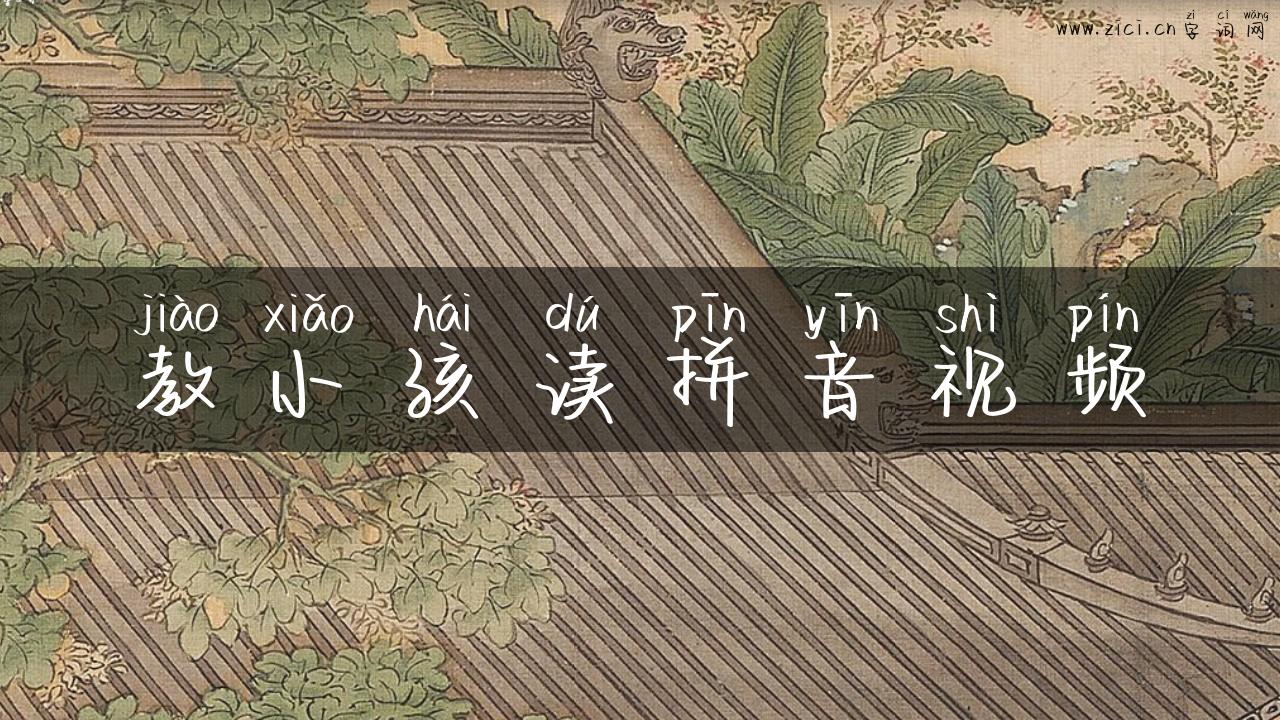 zì cí wǎng
www.zici.cn 字 词 网
jiào xiǎo hái dú pīn yīn shì pín
教 小 孩 读 拼 音 视 频